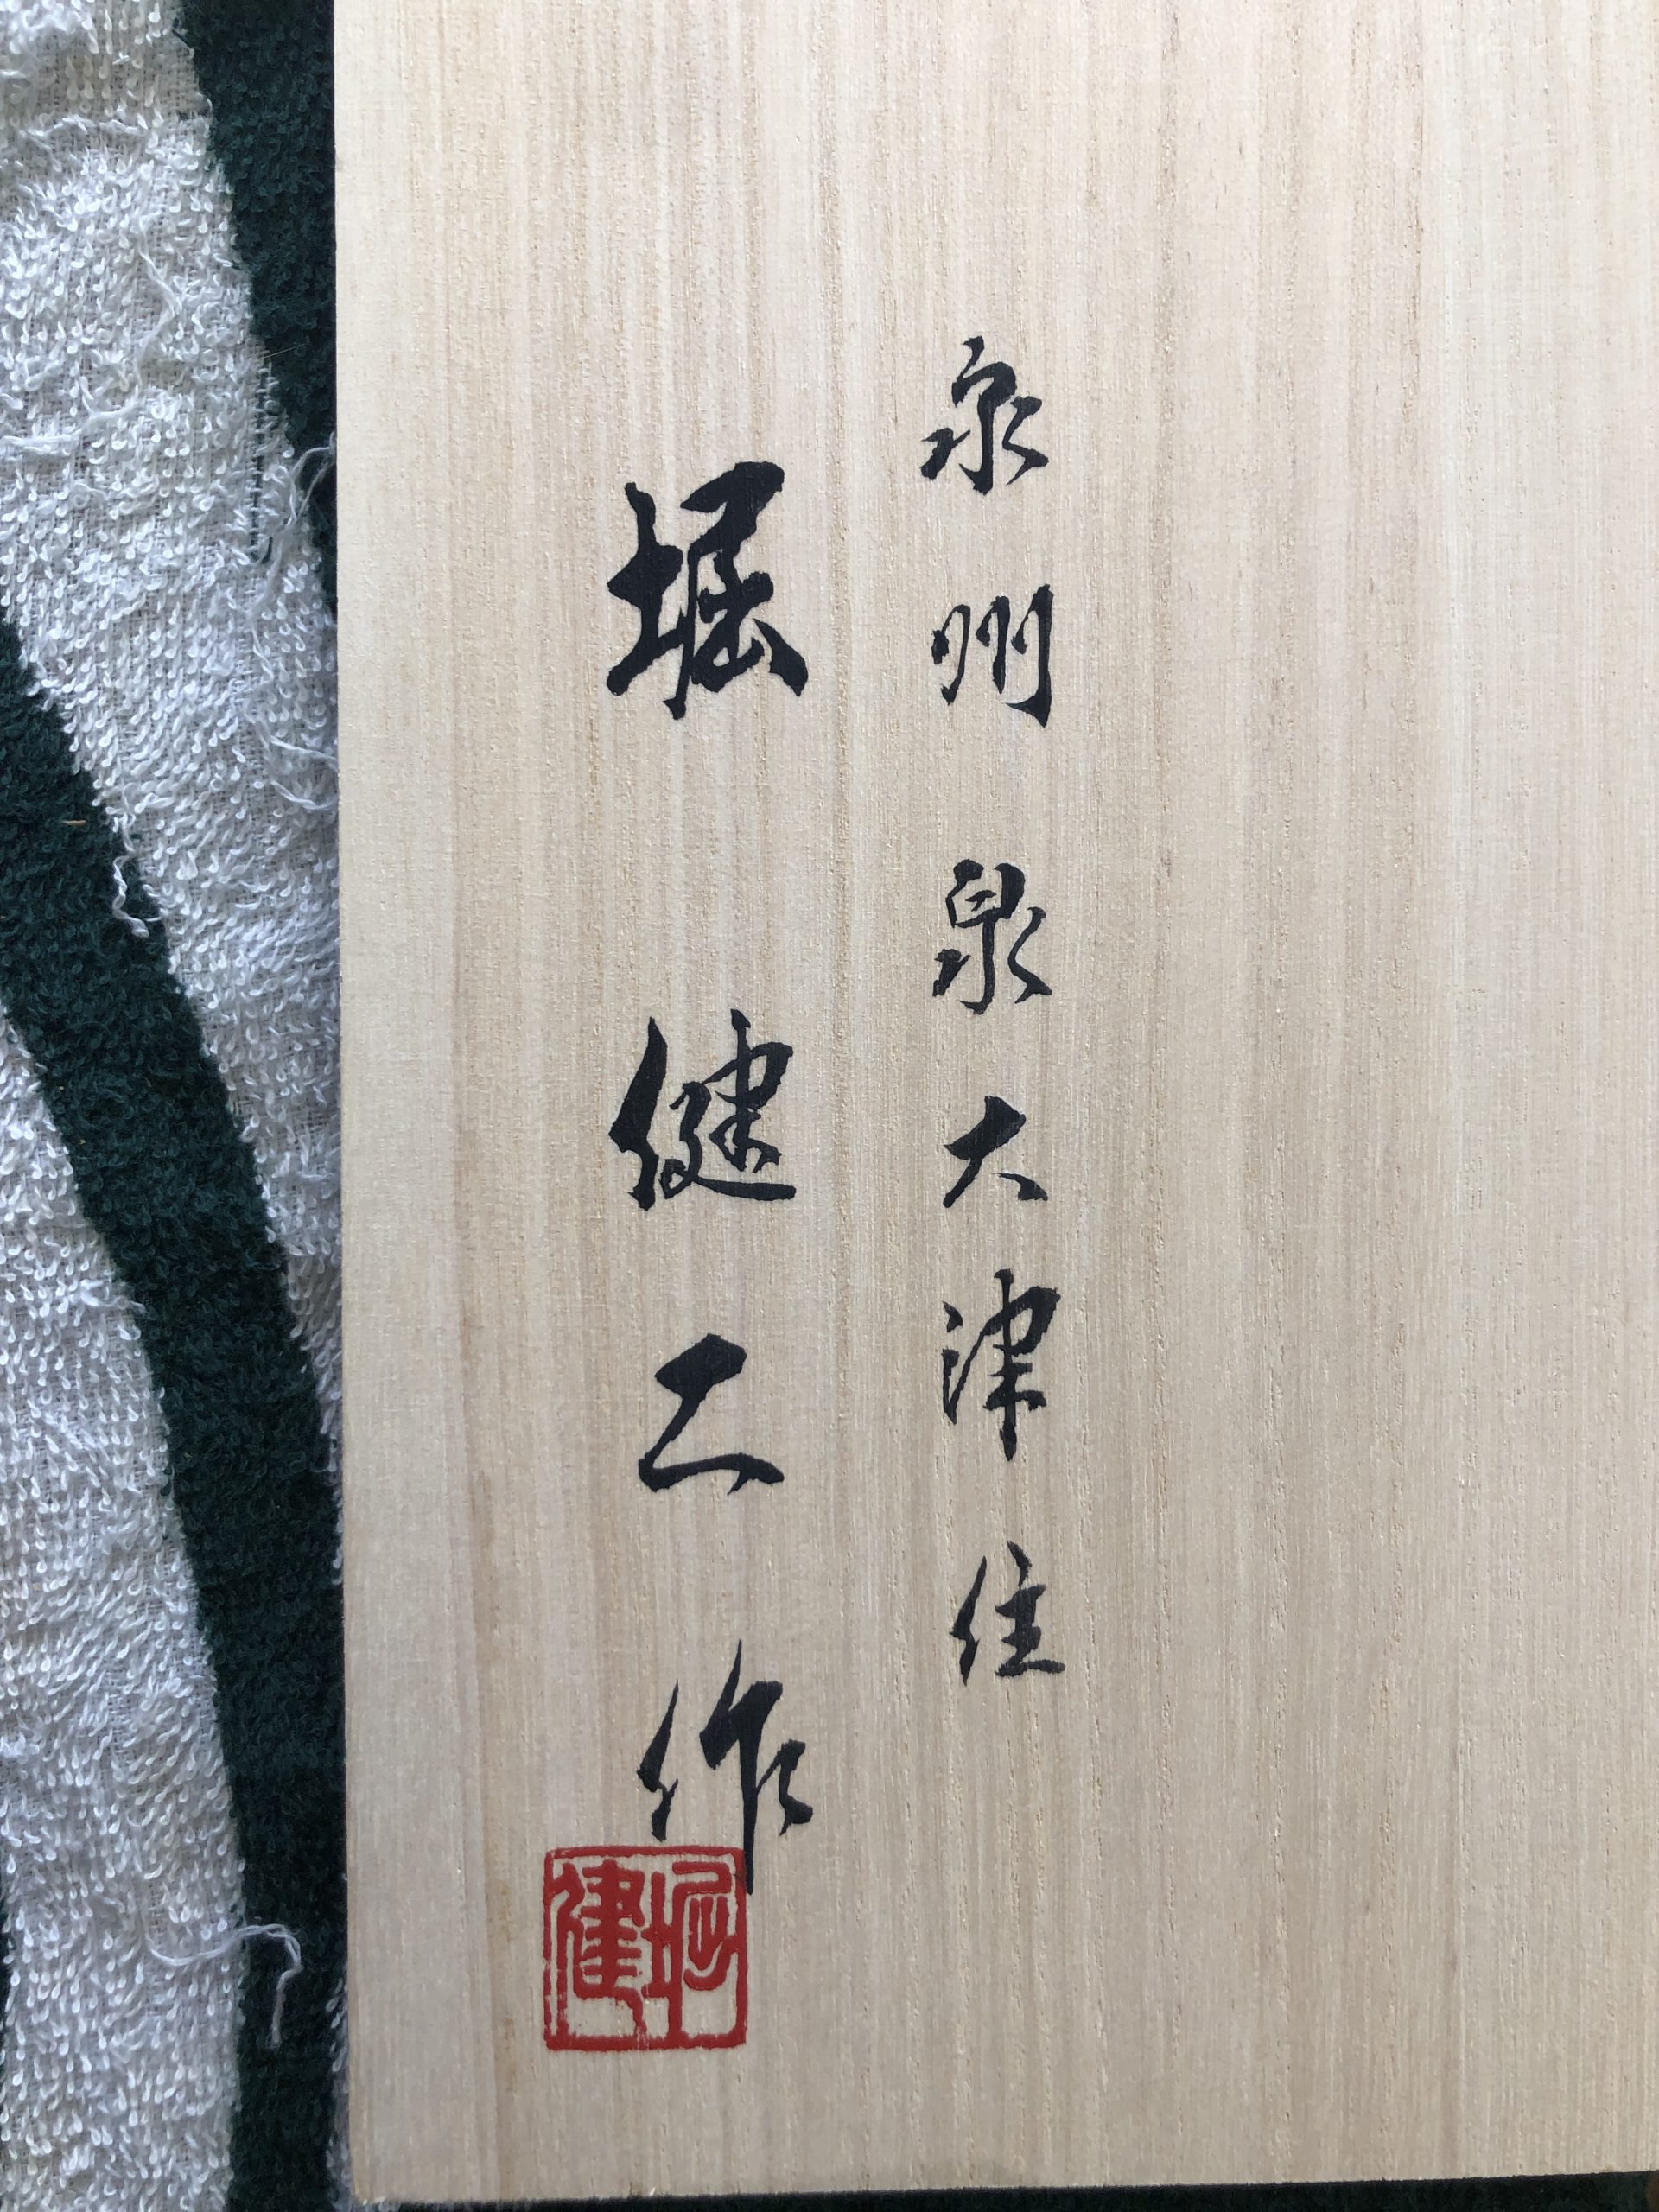 泉州泉大津住
堀健二作
堀健